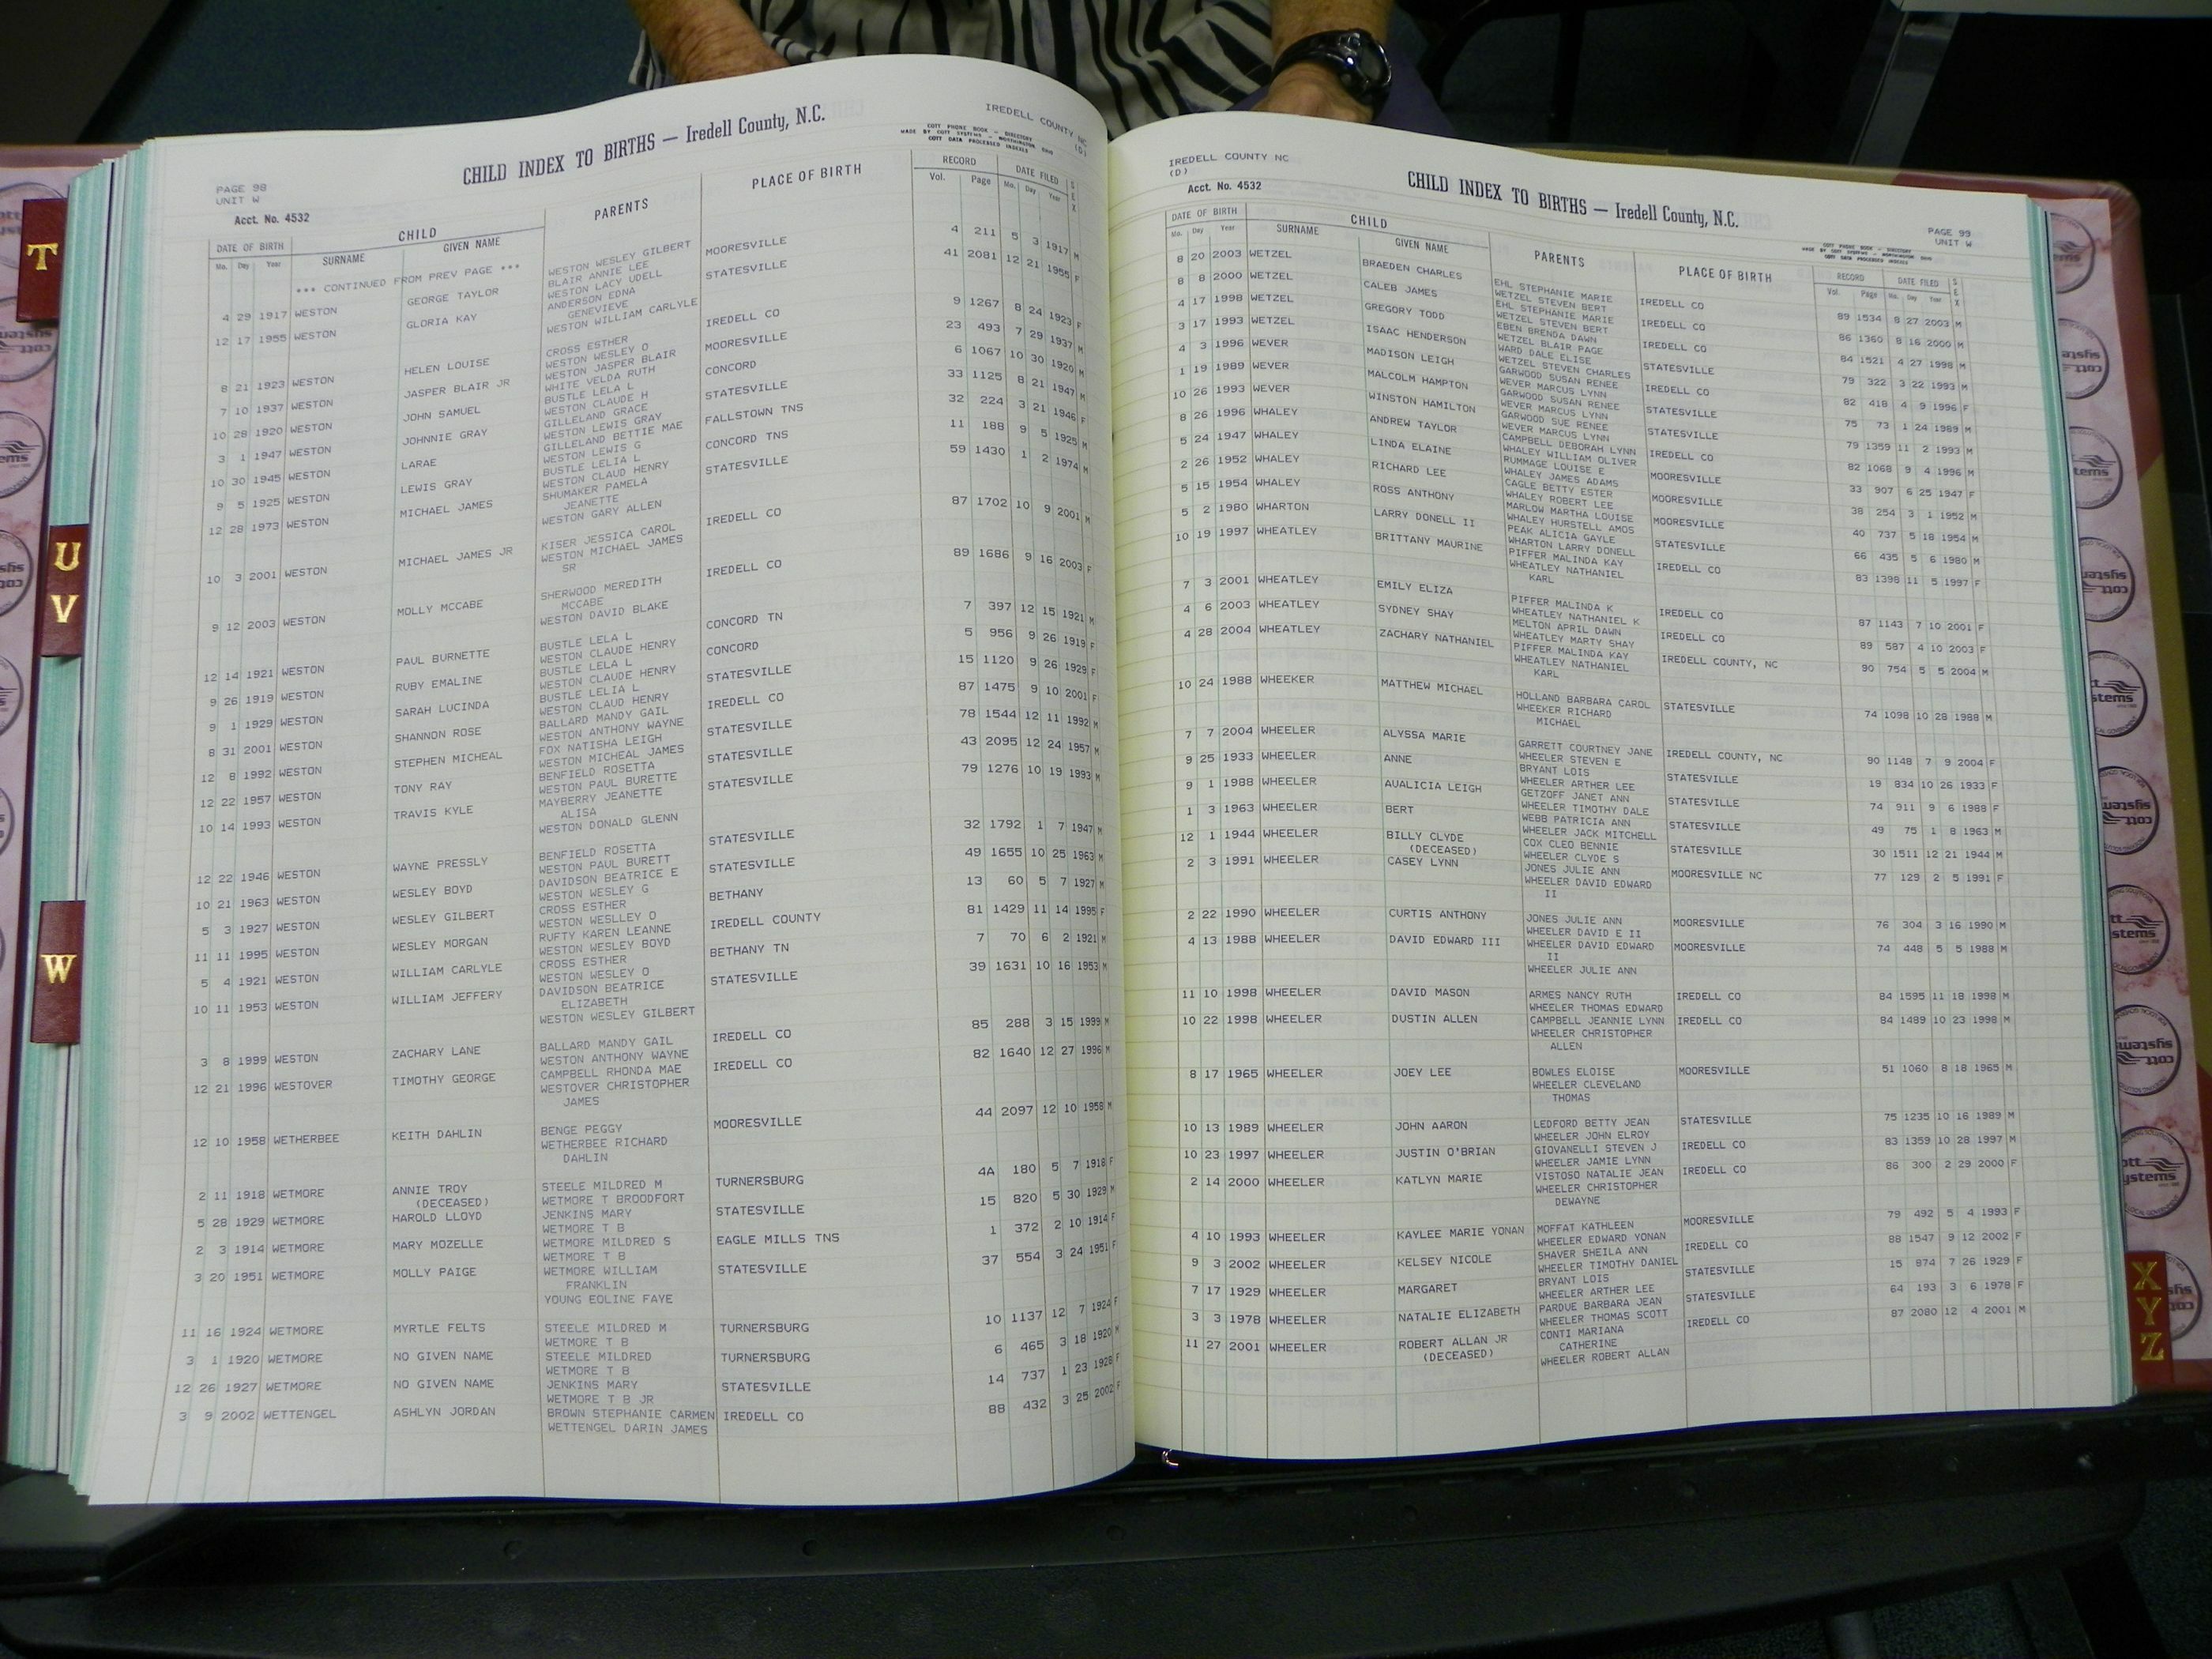 T
U
V
W
X
Y
Z
PAGE 98
UNIT W
Acct. No. 4532
CHILD INDEX TO BIRTHS — Iredell County, N.C.
IREDELL COUNTY NC
(D)
COTT PHONE BOOK - DIRECTORY
MADE BY COTT SYSTEMS - WORTHINGTON OHIO
COTT DATA PROCESSED INDEXES
DATE OF BIRTH CHILD PARENTS PLACE OF BIRTH RECORD DATE FILED SEX
Mo. Day Year SURNAME GIVEN NAME Vol. Page Mo. Day Year
*** CONTINUED FROM PREV PAGE ***
4 29 1917 WESTON GEORGE TAYLOR WESTON WESLEY GILBERT MOORESVILLE 4 211 5 3 1917 M
BLAIR ANNIE LEE
12 17 1955 WESTON GLORIA KAY WESTON LACY UDELL STATESVILLE 41 2081 12 21 1955 F
ANDERSON EDNA
GENEVIEVE
8 21 1923 WESTON HELEN LOUISE WESTON WILLIAM CARLYLE IREDELL CO 9 1267 8 24 1923 F
CROSS ESTHER
WESTON WESLEY O
7 10 1937 WESTON JASPER BLAIR JR WESTON JASPER BLAIR MOORESVILLE 23 493 7 29 1937 M
WHITE VELDA RUTH
10 28 1920 WESTON JOHN SAMUEL BUSTLE LELA L CONCORD 6 1067 10 30 1920 M
WESTON CLAUDE H
3 1 1947 WESTON JOHNNIE GRAY GILLELAND GRACE STATESVILLE 33 1125 8 21 1947 M
WESTON LEWIS GRAY
10 30 1945 WESTON LARAE GILLELAND BETTIE MAE FALLSTOWN TNS 32 224 3 21 1946 F
WESTON LEWIS G
9 5 1925 WESTON LEWIS GRAY BUSTLE LELIA L CONCORD TNS 11 188 9 5 1925 M
WESTON CLAUD HENRY
12 28 1973 WESTON MICHAEL JAMES SHUMAKER PAMELA STATESVILLE 59 1430 1 2 1974 M
JEANETTE
WESTON GARY ALLEN
10 3 2001 WESTON MICHAEL JAMES JR KISER JESSICA CAROL IREDELL CO 87 1702 10 9 2001 M
WESTON MICHAEL JAMES
SR
9 12 2003 WESTON MOLLY MCCABE SHERWOOD MEREDITH IREDELL CO 89 1686 9 16 2003 F
MCCABE
WESTON DAVID BLAKE
12 14 1921 WESTON PAUL BURNETTE BUSTLE LELA L CONCORD TN 7 397 12 15 1921 M
WESTON CLAUDE HENRY
9 26 1919 WESTON RUBY EMALINE BUSTLE LELA L CONCORD 5 956 9 26 1919 F
WESTON CLAUDE HENRY
9 1 1929 WESTON SARAH LUCINDA BUSTLE LELIA L STATESVILLE 15 1120 9 26 1929 F
WESTON CLAUD HENRY
8 31 2001 WESTON SHANNON ROSE BALLARD MANDY GAIL IREDELL CO 87 1475 9 10 2001 F
WESTON ANTHONY WAYNE
12 8 1992 WESTON STEPHEN MICHEAL FOX NATISHA LEIGH STATESVILLE 78 1544 12 11 1992 M
WESTON MICHEAL JAMES
12 22 1957 WESTON TONY RAY BENFIELD ROSETTA STATESVILLE 43 2095 12 24 1957 M
WESTON PAUL BURETTE
10 14 1993 WESTON TRAVIS KYLE MAYBERRY JEANETTE STATESVILLE 79 1276 10 19 1993 M
ALISA
WESTON DONALD GLENN
12 22 1946 WESTON WAYNE PRESSLY BENFIELD ROSETTA STATESVILLE 32 1792 1 7 1947 M
WESTON PAUL BURETT
10 21 1963 WESTON WESLEY BOYD DAVIDSON BEATRICE E STATESVILLE 49 1655 10 25 1963 M
WESTON WESLEY G
5 3 1927 WESTON WESLEY GILBERT CROSS ESTHER BETHANY 13 60 5 7 1927 M
WESTON WESLLEY O
11 11 1995 WESTON WESLEY MORGAN RUFTY KAREN LEANNE IREDELL COUNTY 81 1429 11 14 1995 F
WESTON WESLEY BOYD
5 4 1921 WESTON WILLIAM CARLYLE CROSS ESTHER BETHANY TN 7 70 6 2 1921 M
WESTON WESLEY O
10 11 1953 WESTON WILLIAM JEFFERY DAVIDSON BEATRICE STATESVILLE 39 1631 10 16 1953 M
ELIZABETH
WESTON WESLEY GILBERT
3 8 1999 WESTON ZACHARY LANE BALLARD MANDY GAIL IREDELL CO 85 288 3 15 1999 M
WESTON ANTHONY WAYNE
12 21 1996 WESTOVER TIMOTHY GEORGE CAMPBELL RHONDA MAE IREDELL CO 82 1640 12 27 1996 M
WESTOVER CHRISTOPHER
JAMES
12 10 1958 WETHERBEE KEITH DAHLIN BENGE PEGGY MOORESVILLE 44 2097 12 10 1958 M
WETHERBEE RICHARD
DAHLIN
2 11 1918 WETMORE ANNIE TROY STEELE MILDRED M TURNERSBURG 4A 180 5 7 1918 F
(DECEASED) WETMORE T BROODFORT
5 28 1929 WETMORE HAROLD LLOYD JENKINS MARY STATESVILLE 15 820 5 30 1929 M
WETMORE T B
2 3 1914 WETMORE MARY MOZELLE WETMORE MILDRED S EAGLE MILLS TNS 1 372 2 10 1914 F
WETMORE T B
3 20 1951 WETMORE MOLLY PAIGE WETMORE WILLIAM STATESVILLE 37 554 3 24 1951 F
FRANKLIN
YOUNG EOLINE FAYE
11 16 1924 WETMORE MYRTLE FELTS STEELE MILDRED M TURNERSBURG 10 1137 12 7 1924 F
WETMORE T B
3 1 1920 WETMORE NO GIVEN NAME STEELE MILDRED TURNERSBURG 6 465 3 18 1920 M
WETMORE T B
12 26 1927 WETMORE NO GIVEN NAME JENKINS MARY STATESVILLE 14 737 1 23 1928 F
WETMORE T B JR
3 9 2002 WETTENGEL ASHLYN JORDAN BROWN STEPHANIE CARMEN IREDELL CO 88 432 3 25 2002 F
WETTENGEL DARIN JAMES
IREDELL COUNTY NC
(D)
Acct. No. 4532
CHILD INDEX TO BIRTHS — Iredell County, N.C.
PAGE 99
UNIT W
COTT PHONE BOOK - DIRECTORY
MADE BY COTT SYSTEMS - WORTHINGTON OHIO
COTT DATA PROCESSED INDEXES
DATE OF BIRTH CHILD PARENTS PLACE OF BIRTH RECORD DATE FILED SEX
Mo. Day Year SURNAME GIVEN NAME Vol. Page Mo. Day Year
8 20 2003 WETZEL BRAEDEN CHARLES EHL STEPHANIE MARIE IREDELL CO 89 1534 8 27 2003 M
WETZEL STEVEN BERT
8 8 2000 WETZEL CALEB JAMES EHL STEPHANIE MARIE IREDELL CO 86 1360 8 16 2000 M
WETZEL STEVEN BERT
4 17 1998 WETZEL GREGORY TODD EBEN BRENDA DAWN IREDELL CO 84 1521 4 27 1998 M
WETZEL BLAIR PAGE
3 17 1993 WETZEL ISAAC HENDERSON WARD DALE ELISE STATESVILLE 79 322 3 22 1993 M
WETZEL STEVEN CHARLES
4 3 1996 WEVER MADISON LEIGH GARWOOD SUSAN RENEE IREDELL CO 82 418 4 9 1996 F
WEVER MARCUS LYNN
1 19 1989 WEVER MALCOLM HAMPTON GARWOOD SUSAN RENEE STATESVILLE 75 73 1 24 1989 M
WEVER MARCUS LYNN
10 26 1993 WEVER WINSTON HAMILTON GARWOOD SUE RENEE STATESVILLE 79 1359 11 2 1993 M
WEVER MARCUS LYNN
8 26 1996 WHALEY ANDREW TAYLOR CAMPBELL DEBORAH LYNN IREDELL CO 82 1068 9 4 1996 M
WHALEY WILLIAM OLIVER
5 24 1947 WHALEY LINDA ELAINE RUMMAGE LOUISE E MOORESVILLE 33 907 6 25 1947 F
WHALEY JAMES ADAMS
2 26 1952 WHALEY RICHARD LEE CAGLE BETTY ESTER MOORESVILLE 38 254 3 1 1952 M
WHALEY ROBERT LEE
5 15 1954 WHALEY ROSS ANTHONY MARLOW MARTHA LOUISE MOORESVILLE 40 737 5 18 1954 M
WHALEY HURSTELL AMOS
5 2 1980 WHARTON LARRY DONELL II PEAK ALICIA GAYLE STATESVILLE 66 435 5 6 1980 M
WHARTON LARRY DONELL
10 19 1997 WHEATLEY BRITTANY MAURINE PIFFER MALINDA KAY IREDELL CO 83 1398 11 5 1997 F
WHEATLEY NATHANIEL
KARL
7 3 2001 WHEATLEY EMILY ELIZA PIFFER MALINDA K IREDELL CO 87 1143 7 10 2001 F
WHEATLEY NATHANIEL K
4 6 2003 WHEATLEY SYDNEY SHAY MELTON APRIL DAWN IREDELL CO 89 587 4 10 2003 F
WHEATLEY MARTY SHAY
4 28 2004 WHEATLEY ZACHARY NATHANIEL PIFFER MALINDA KAY IREDELL COUNTY, NC 90 754 5 5 2004 M
WHEATLEY NATHANIEL
KARL
10 24 1988 WHEEKER MATTHEW MICHAEL HOLLAND BARBARA CAROL STATESVILLE 74 1098 10 28 1988 M
WHEEKER RICHARD
MICHAEL
7 7 2004 WHEELER ALYSSA MARIE GARRETT COURTNEY JANE IREDELL COUNTY, NC 90 1148 7 9 2004 F
WHEELER STEVEN E
9 25 1933 WHEELER ANNE BRYANT LOIS STATESVILLE 19 834 10 26 1933 F
WHEELER ARTHER LEE
9 1 1988 WHEELER AUALICIA LEIGH GETZOFF JANET ANN STATESVILLE 74 911 9 6 1988 F
WHEELER TIMOTHY DALE
1 3 1963 WHEELER BERT WEBB PATRICIA ANN STATESVILLE 49 75 1 8 1963 M
WHEELER JACK MITCHELL
12 1 1944 WHEELER BILLY CLYDE COX CLEO BENNIE STATESVILLE 30 1511 12 21 1944 M
(DECEASED) WHEELER CLYDE S
2 3 1991 WHEELER CASEY LYNN JONES JULIE ANN MOORESVILLE NC 77 129 2 5 1991 F
WHEELER DAVID EDWARD
II
2 22 1990 WHEELER CURTIS ANTHONY JONES JULIE ANN MOORESVILLE 76 304 3 16 1990 M
WHEELER DAVID E II
4 13 1988 WHEELER DAVID EDWARD III WHEELER DAVID EDWARD MOORESVILLE 74 448 5 5 1988 M
II
WHEELER JULIE ANN
11 10 1998 WHEELER DAVID MASON ARMES NANCY RUTH IREDELL CO 84 1595 11 18 1998 M
WHEELER THOMAS EDWARD
10 22 1998 WHEELER DUSTIN ALLEN CAMPBELL JEANNIE LYNN IREDELL CO 84 1489 10 23 1998 M
WHEELER CHRISTOPHER
ALLEN
8 17 1965 WHEELER JOEY LEE BOWLES ELOISE MOORESVILLE 51 1060 8 18 1965 M
WHEELER CLEVELAND
THOMAS
10 13 1989 WHEELER JOHN AARON LEDFORD BETTY JEAN STATESVILLE 75 1235 10 16 1989 M
WHEELER JOHN ELROY
10 23 1997 WHEELER JUSTIN O'BRIAN GIOVANELLI STEVEN J IREDELL CO 83 1359 10 28 1997 M
WHEELER JAMIE LYNN
2 14 2000 WHEELER KATLYN MARIE VISTOSO NATALIE JEAN IREDELL CO 86 300 2 29 2000 F
WHEELER CHRISTOPHER
DEWAYNE
4 10 1993 WHEELER KAYLEE MARIE YONAN MOFFAT KATHLEEN MOORESVILLE 79 492 5 4 1993 F
WHEELER EDWARD YONAN
9 3 2002 WHEELER KELSEY NICOLE SHAVER SHEILA ANN IREDELL CO 88 1547 9 12 2002 F
WHEELER TIMOTHY DANIEL
7 17 1929 WHEELER MARGARET BRYANT LOIS STATESVILLE 15 874 7 26 1929 F
WHEELER ARTHER LEE
3 3 1978 WHEELER NATALIE ELIZABETH PARDUE BARBARA JEAN STATESVILLE 64 193 3 6 1978 F
WHEELER THOMAS SCOTT
11 27 2001 WHEELER ROBERT ALLAN JR CONTI MARIANA IREDELL CO 87 2080 12 4 2001 M
(DECEASED) CATHERINE
WHEELER ROBERT ALLAN